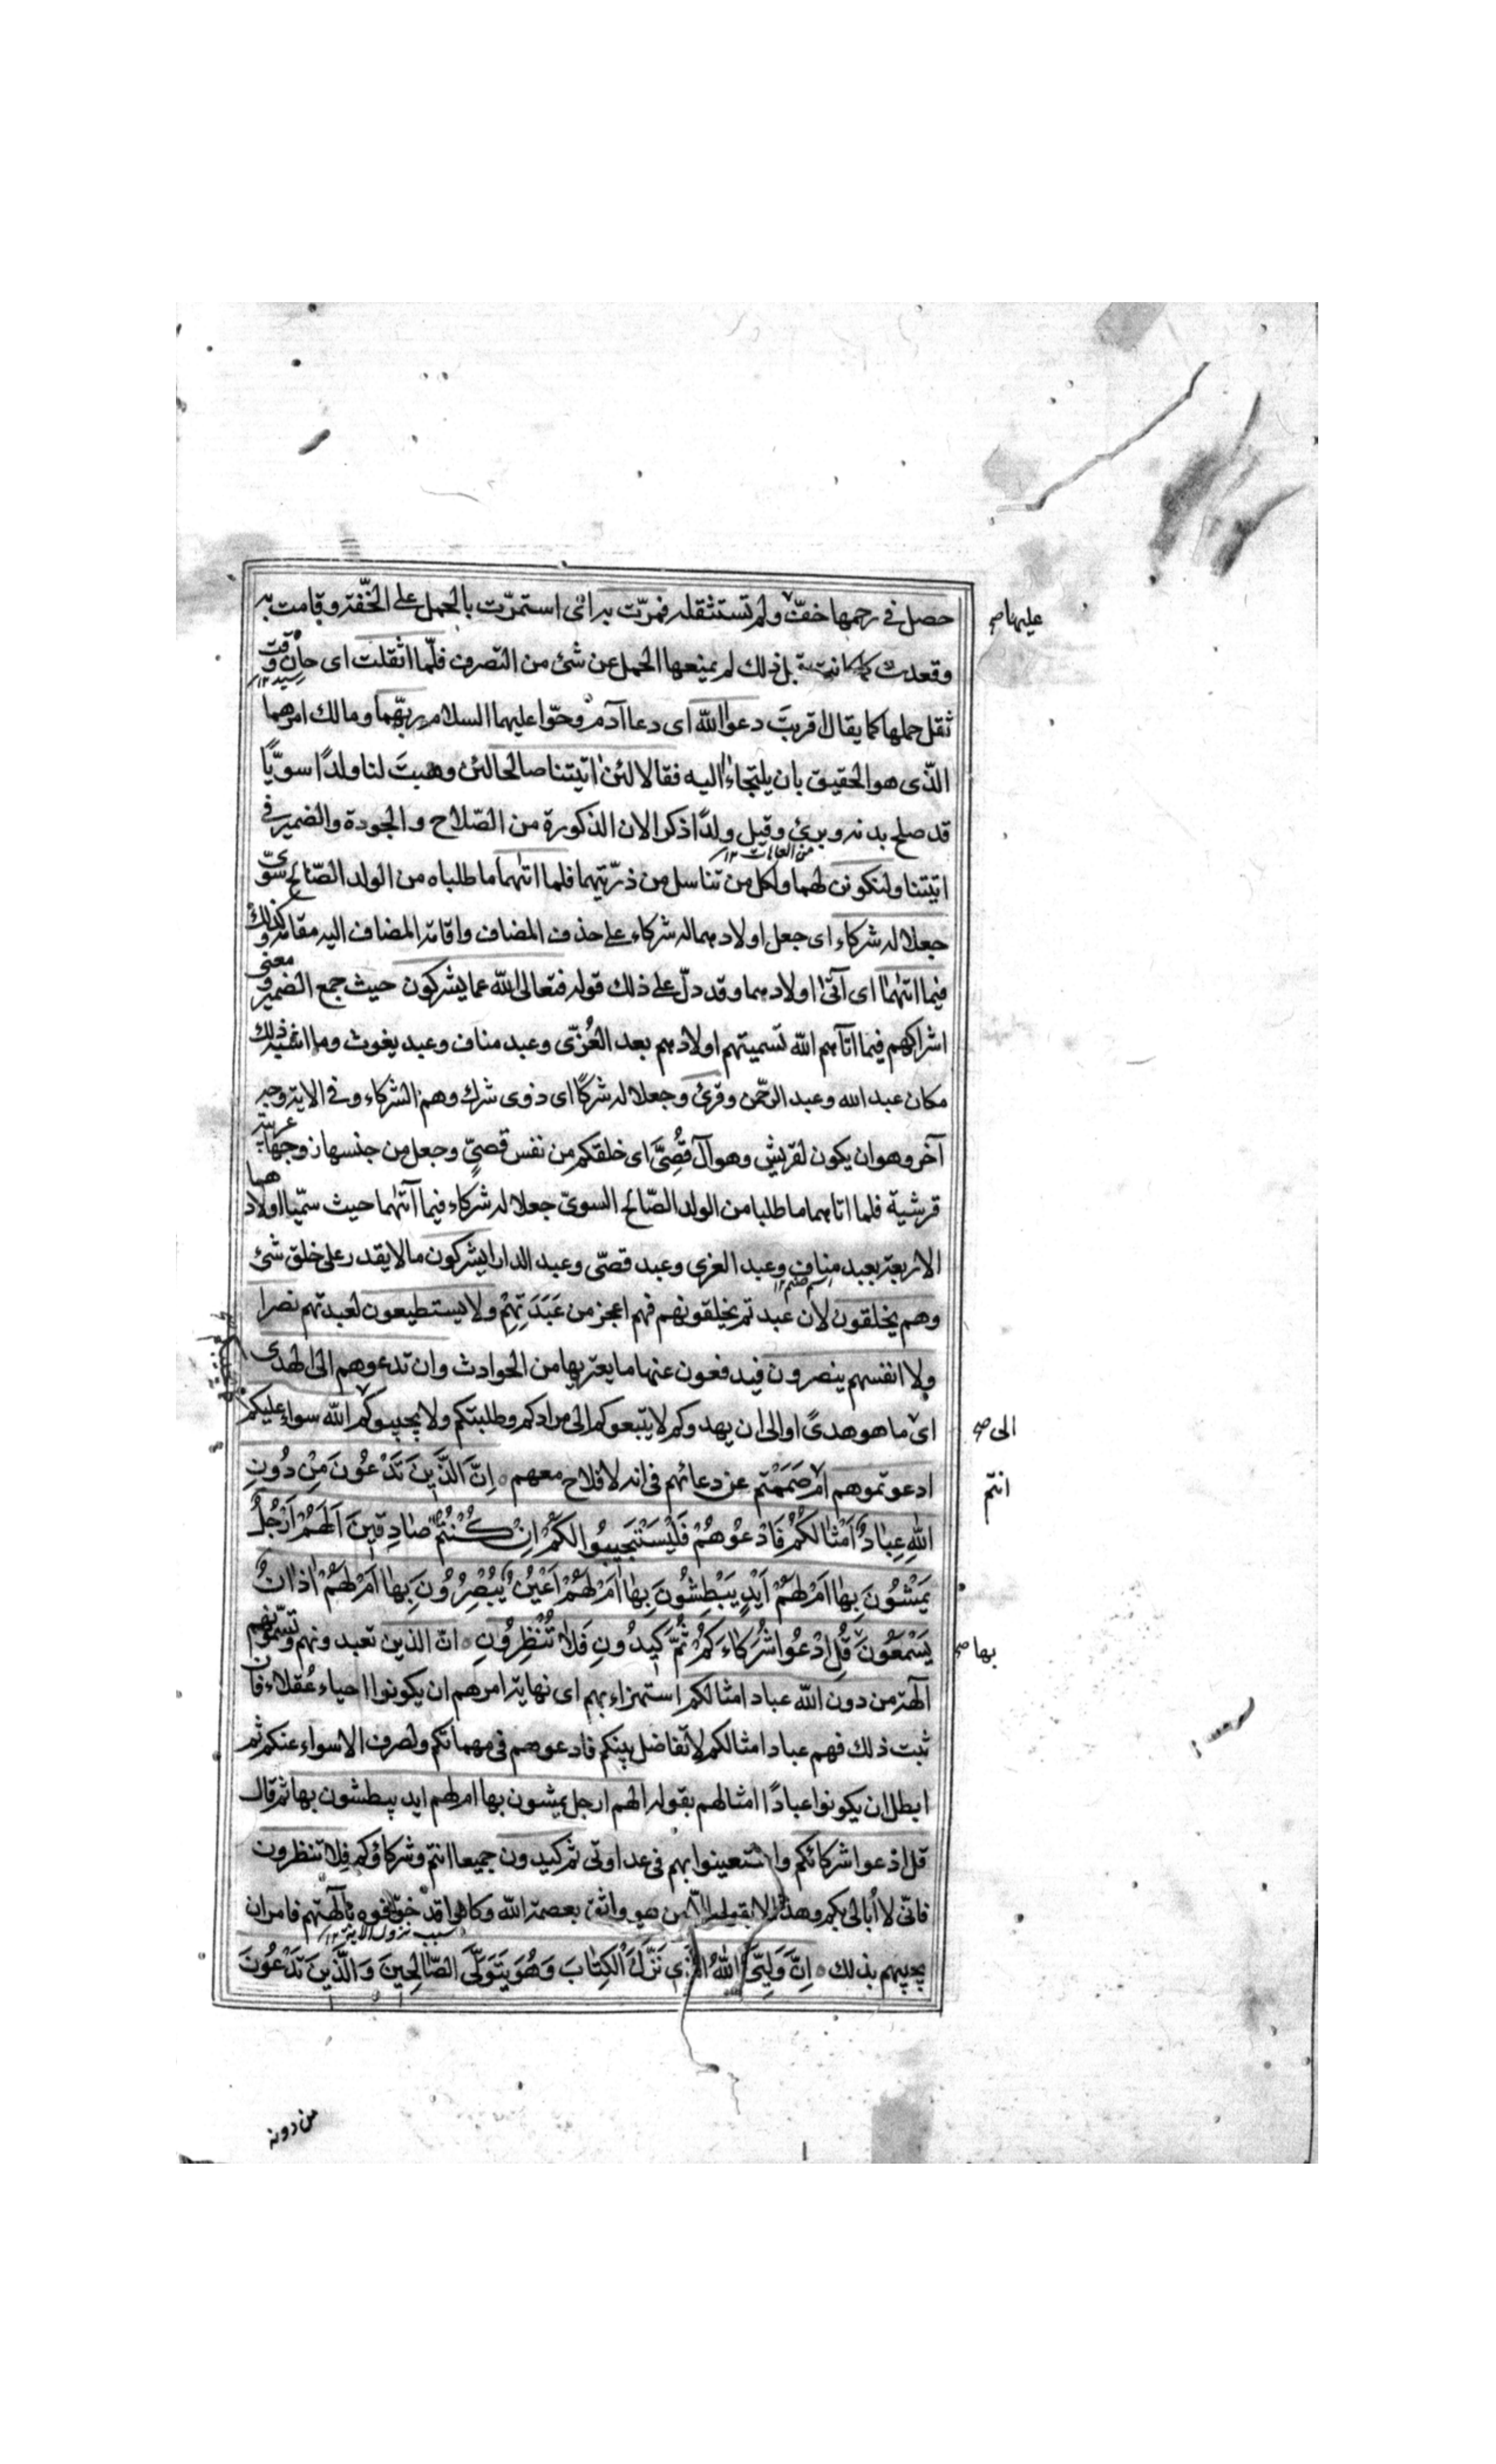 حصل فى رحمها خفّت ولم تستثقله فمرّت به اى استمرّت بالحمل على الخفّة وقامت به
عليها صح
وقعدت كما كانت قبل ذلك لم يمنعها الحمل عن شئ من التصرف فلمّا اثقلت اى حان وقت
ثقل حملها كما يقال اقربت دعوا الله اى دعا آدم وحوّا عليهما السلام ربّهما ومالك امرهما
الذى هو الحقيق بان يلتجاء اليه فقالا لئن اتيتنا صالحا لئن وهبت لنا ولدًا سويًّا
قد صلح بدنه وبرئ وقيل ولدًا ذكرا لان الذكورة من الصّلاح والجودة والضمير فى
اتيتنا ولنكونن لهما ولكل من تناسل من ذرّيتهما فلما اتٰهما ما طلباه من الولد الصّالح سوىّ
جعلا له شركاء اى جعل اولادهما له شركاء على حذف المضاف واقامة المضاف اليه مقامه وكذلك
فيما اتٰهما اى آتىٰ اولادهما وقد دلّ على ذلك قوله فتعالى الله عما يشركون حيث جمع الضمير ومعنى
اشراكهم فيما اتاهم الله تسميتهم اولادهم بعد العُزّى وعبد مناف وعبد يغوث وما اشبه ذلك
مكان عبد الله وعبد الرحمن وقرئ وجعلا له شركًا اى ذوى شرك وهم الشركاء وفى الاية وجه
آخر وهو ان يكون لقريش وهو آل قُصِىّ اى خلقكم من نفس قصىٍّ وجعل من جنسها زوجها عربية
قرشية فلما اتاهما ما طلبا من الولد الصّالح السوىّ جعلا له شركاء فيما آتٰهما حيث سمّيا اولادهما
الاربعة بعبد مناف وعبد العزى وعبد قصّى وعبد الدار ايشركون ما لا يقدر على خلق شئ
وهم يخلقون لان عبدتم يخلقونهم فهم اعجز من عَبَدَتِهِمْ ولا يستطيعون لعبدتهم نصرا
ولا انفسهم ينصرون فيدفعون عنها ما يعتريها من الحوادث وان تدعوهم الى الهدى
اى ما هو هدىً او الى ان يهدوكم لا يتبعوكم الى مرادكم وطلبتكم ولا يجيبوكم الله سواء عليكم
الى صح
ادعوتموهم ام صَمَمْتم عن دعائهم فى انه لا فلاح معهم ه اِنَّ الَّذِينَ تَدْعُونَ مِنْ دُونِ
انتم
اللهِ عِبَادٌ اَمْثَالُكُمْ فَادْعُوهُمْ فَلْيَسْتَجِيبُوا لَكُمْ اِنْ كُنْتُمْ صَادِقِينَ اَلَهُمْ اَرْجُلٌ
يَمْشُونَ بِهَا اَمْ لَهُمْ اَيْدٍ يَبْطِشُونَ بِهَا اَمْ لَهُمْ اَعْيُنٌ يُبْصِرُونَ بِهَا اَمْ لَهُمْ اٰذَانٌ
يَسْمَعُونَ قُلِ ادْعُوا شُرَكَاءَكُمْ ثُمَّ كِيدُونِ فَلَا تُنْظِرُونِ ه انّ الذين تعبدونهم وتسمّونهم
بها صح
آلهة من دون الله عباد امثالكم استهزاء بهم اى نهاية امرهم ان يكونوا احياء عُقلاء فان
ثبت ذلك فهم عباد امثالكم لا تفاضل بينكم فادعوهم فى مهماتكم ولصرف الاسواء عنكم ثم
ابطل ان يكونوا عبادًا امثالهم بقوله الهم ارجل يمشون بها ام لهم ايد يبطشون بها ثم قال
قل ادعوا شركائكم واستعينوا بهم فى عداوتى ثم كيدون جميعا انتم وشركاؤكم فلا تنظرون
فانّى لا اُبالى بكم وهذا لا يقوله الّا من هو واثق بعصمة الله وكانوا قد خوّفوه بآلهتهم فامر ان
سبب نزول الاية ١٢
يجيبهم بذلك ه اِنَّ وَلِيَّ اللهُ الَّذِى نَزَّلَ الْكِتٰابَ وَهُوَ يَتَوَلَّى الصَّالِحِينَ وَالَّذِينَ تَدْعُونَ
من دونه